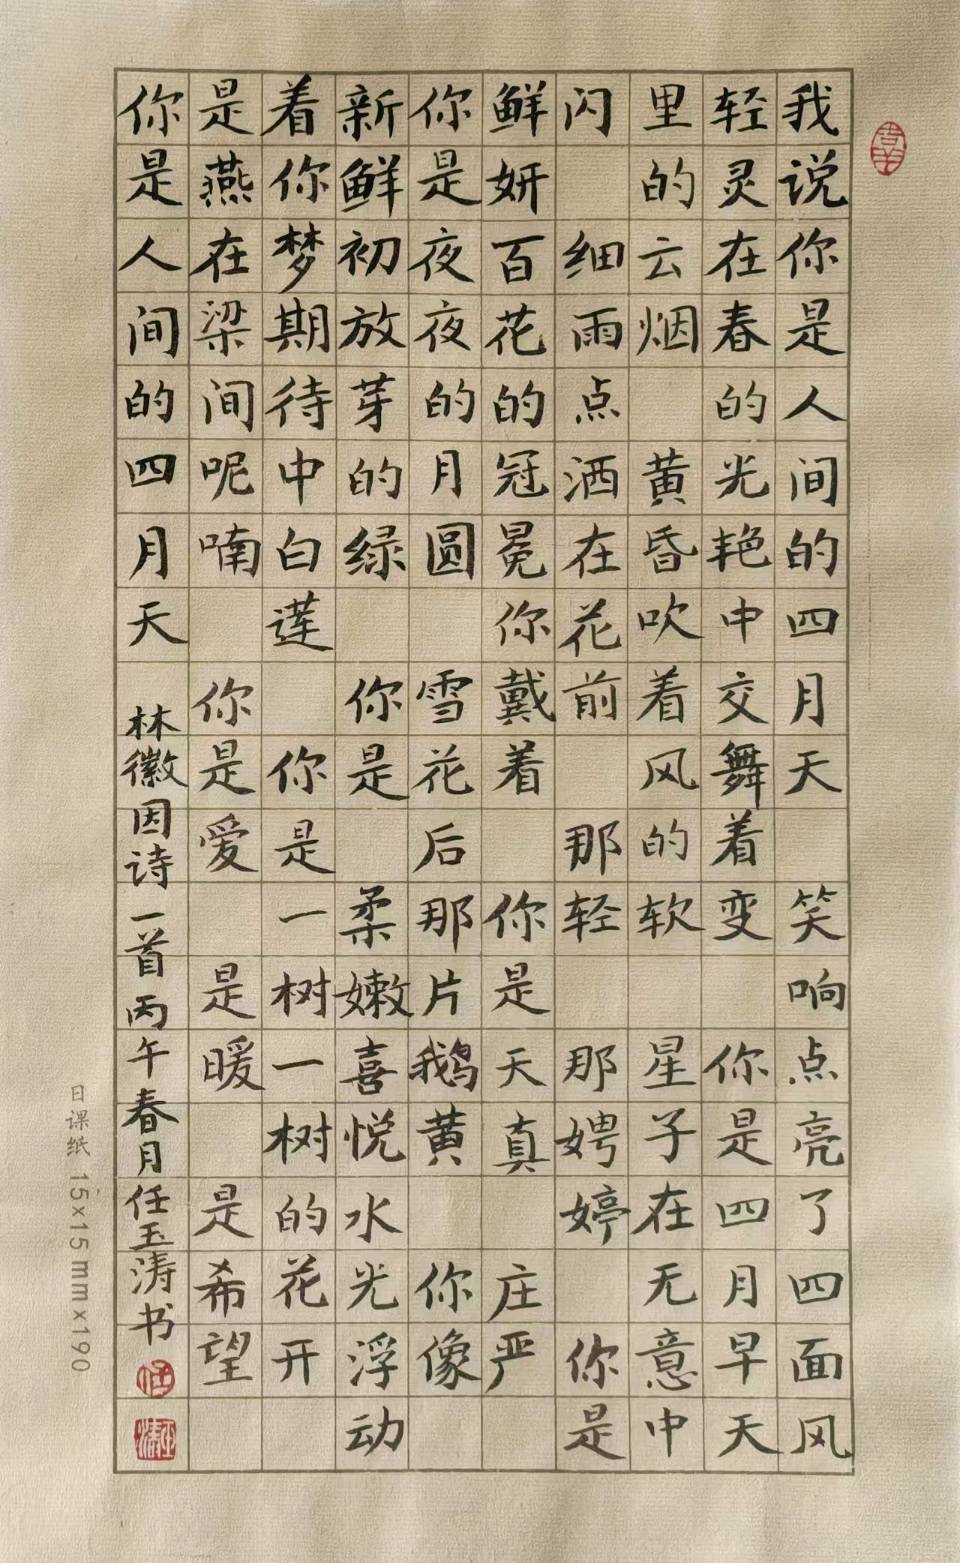 我说你是人间的四月天 笑响点亮了四面风
轻灵在春的光艳中交舞着变 你是四月早天
里的云烟 黄昏吹着风的软 星子在无意中
闪 细雨点洒在花前 那轻 那娉婷 你是
鲜妍百花的冠冕你戴着 你是天真 庄严
你是夜夜的月圆 雪花后那片鹅黄 你像
新鲜初放芽的绿 你是 柔嫩喜悦水光浮动
着你梦期待中白莲 你是一树一树的花开
是燕在梁间呢喃 你是爱 是暖 是希望
你是人间的四月天 林徽因诗一首丙午春月任玉涛书
日课纸 15×15mm×190